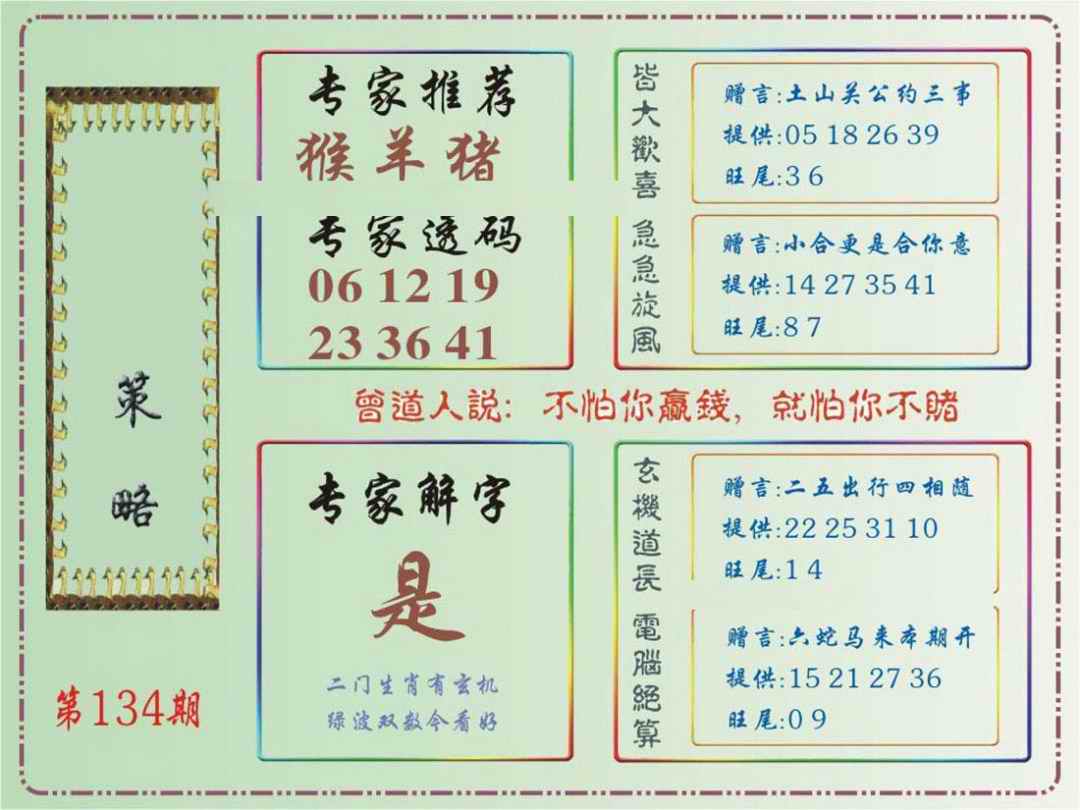 策略
第134期
专家推荐
猴羊猪
专家透码
06 12 19
23 36 41
皆大歡喜
赠言:土山关公约三事
提供:05 18 26 39
旺尾:3 6
急急旋风
赠言:小合更是合你意
提供:14 27 35 41
旺尾:8 7
曾道人説: 不怕你赢錢, 就怕你不賭
专家解字
是
二门生肖有玄机
绿波双数今看好
玄機道長
赠言:二五出行四相随
提供:22 25 31 10
旺尾:1 4
電腦絕算
赠言:六蛇马来本期开
提供:15 21 27 36
旺尾:0 9